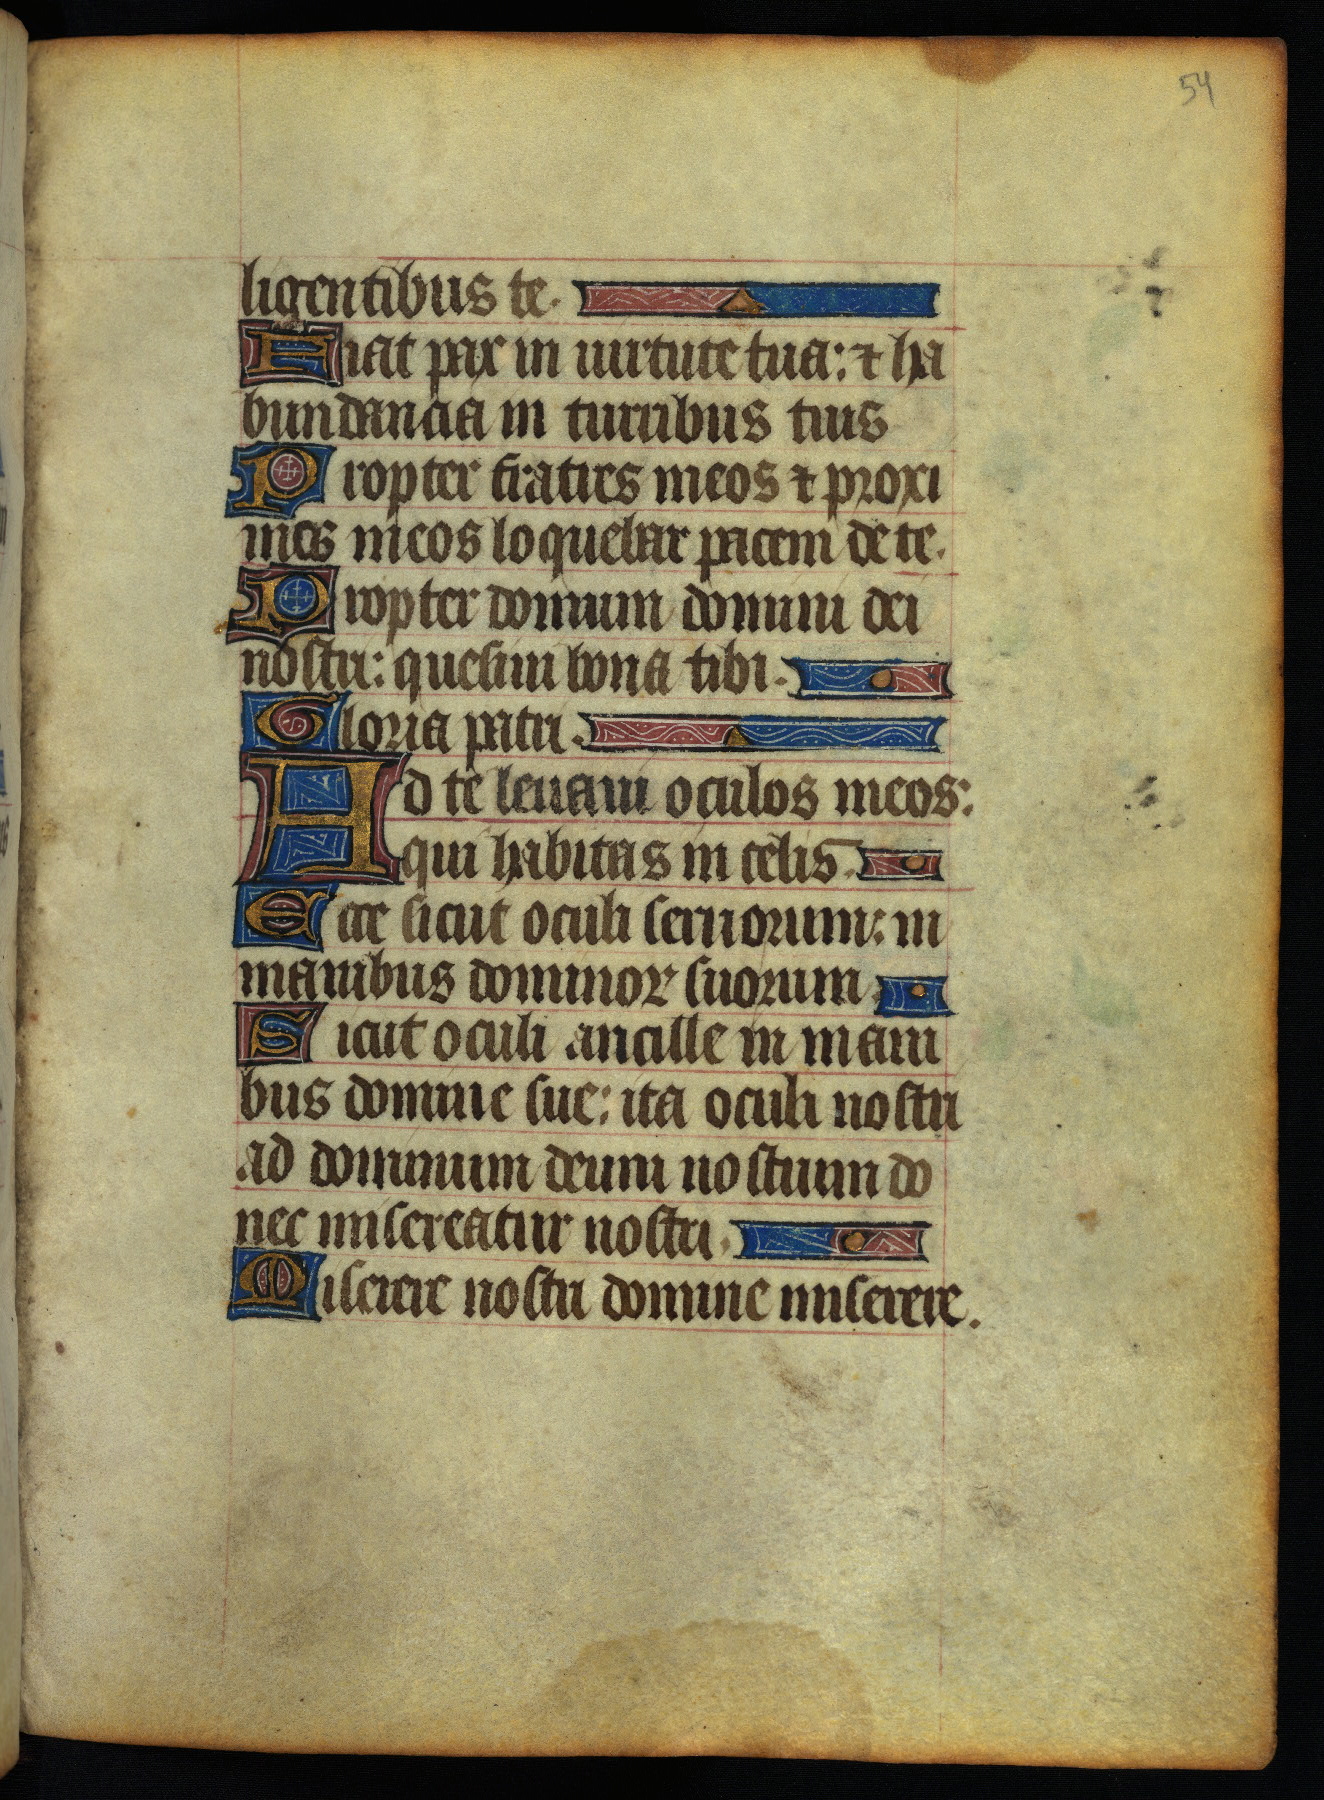 54
ligentibus te.
Fiat pax in uirtute tua: ⁊ ha
bundancia in turribus tuis
Propter fratres meos ⁊ proxi
mos meos loquebar pacem de te.
Propter domum domini dei
nostri: quesiui bona tibi.
Gloria patri.
Ad te leuaui oculos meos:
qui habitas in celis.
Ecce sicut oculi seruorum: in
manibus dominoꝝ suorum
Sicut oculi ancille in mani
bus domine sue: ita oculi nostri
ad dominum deum nostrum do
nec misereatur nostri.
Miserere nostri domine miserere.